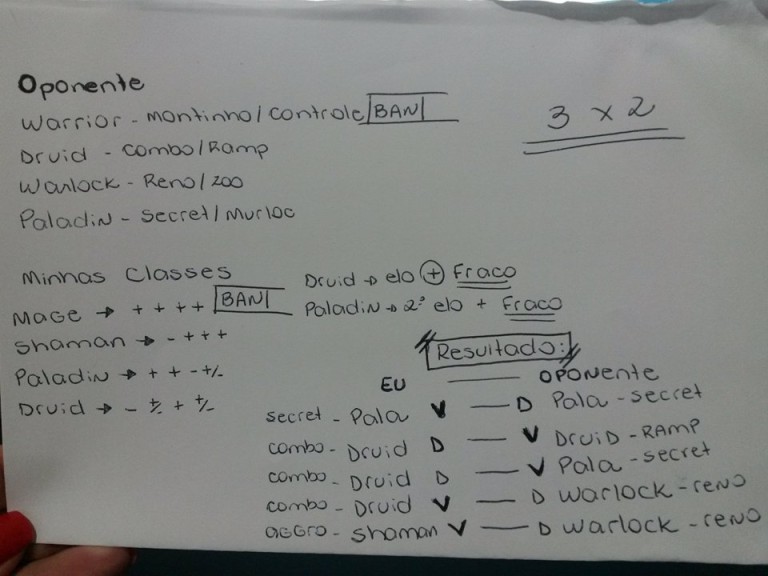 Oponente
Warrior - Montinho/Controle BAN
3 x 2
Druid - Combo/Ramp
Warlock - Reno/zoo
Paladin - Secret/Murloc
Minhas Classes
Mage → + + + + BAN
Shaman → - + + +
Paladin → + + - +/-
Druid → - +/- + +/-
Druid → elo + Fraco
Paladin → 2º elo + Fraco
Resultado:
EU — OPONENTE
secret - Pala V — D Pala - secret
combo - Druid D — V DRUID - RAMP
combo - Druid D — V Pala - secret
combo - Druid V — D Warlock - reno
aggro - Shaman V — D Warlock - reno